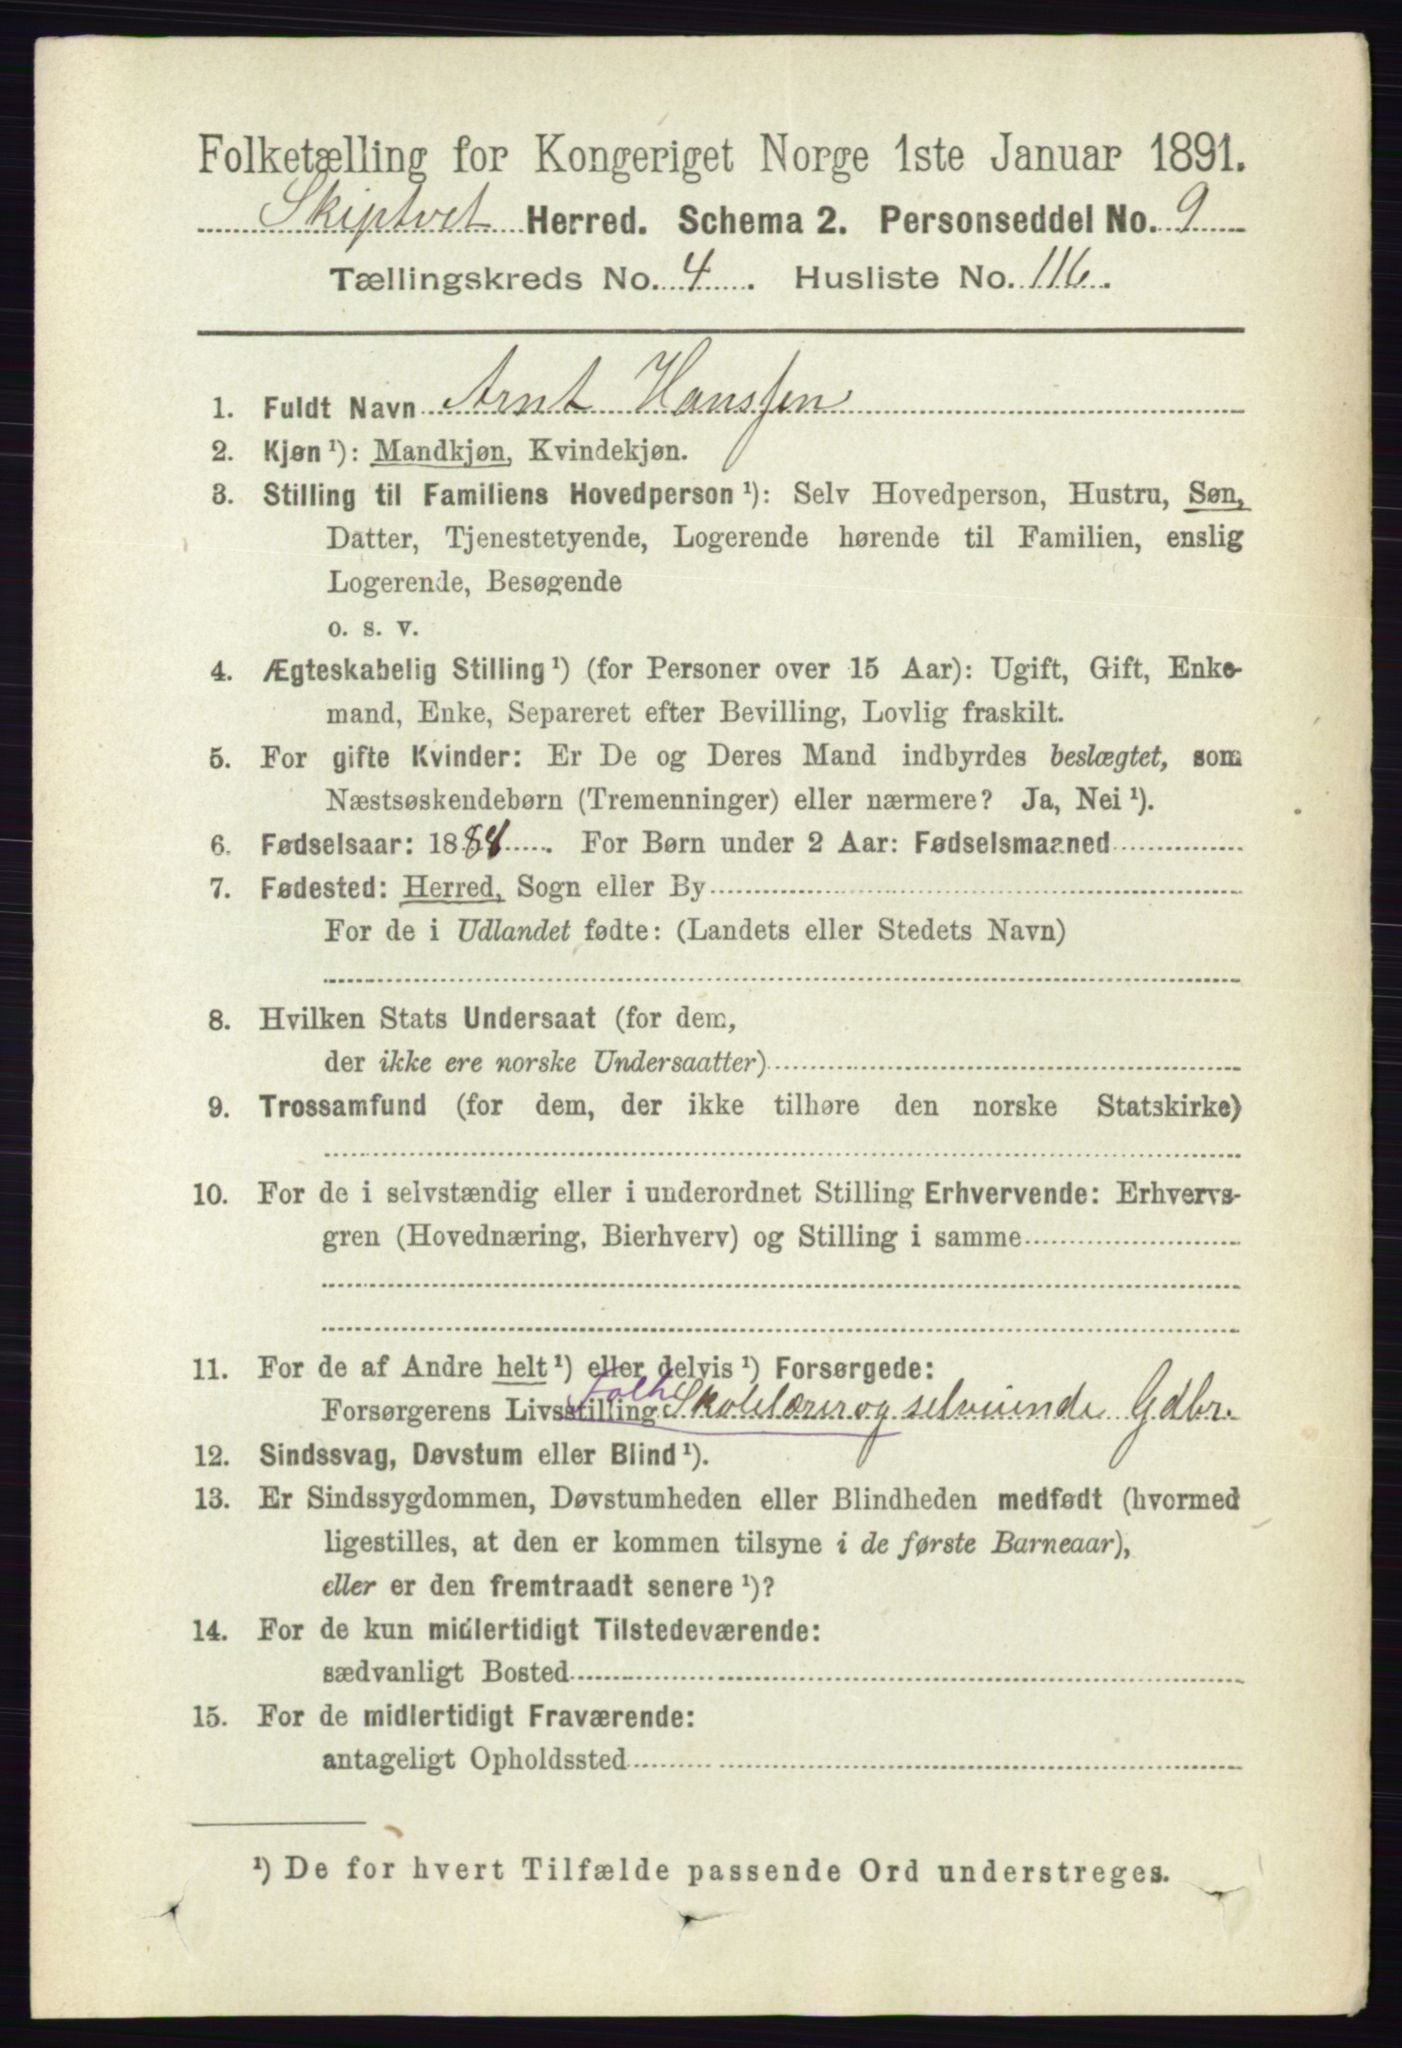 Folketælling for Kongeriget Norge 1ste Januar 1891.
Skiptvet Herred. Schema 2. Personseddel No. 9
Tællingskreds No. 4. Husliste No. 116.
1. Fuldt Navn Arnt Hanssen
2. Kjøn ¹): Mandkjøn, Kvindekjøn.
3. Stilling til Familiens Hovedperson ¹): Selv Hovedperson, Hustru, Søn,
Datter, Tjenestetyende, Logerende hørende til Familien, enslig
Logerende, Besøgende
o. s. v.
4. Ægteskabelig Stilling ¹) (for Personer over 15 Aar): Ugift, Gift, Enke-
mand, Enke, Separeret efter Bevilling, Lovlig fraskilt.
5. For gifte Kvinder: Er De og Deres Mand indbyrdes beslægtet, som
Næstsøskendebørn (Tremenninger) eller nærmere? Ja, Nei ¹).
6. Fødselsaar: 1884. For Børn under 2 Aar: Fødselsmaaned
7. Fødested: Herred, Sogn eller By
For de i Udlandet fødte: (Landets eller Stedets Navn)
8. Hvilken Stats Undersaat (for dem,
der ikke ere norske Undersaatter)
9. Trossamfund (for dem, der ikke tilhøre den norske Statskirke)
10. For de i selvstændig eller i underordnet Stilling Erhvervende: Erhvervs-
gren (Hovednæring, Bierhverv) og Stilling i samme
11. For de af Andre helt ¹) eller delvis ¹) Forsørgede:
Folke
Forsørgerens Livsstilling Skolelærer og selveiende Gdbr.
12. Sindssvag, Døvstum eller Blind ¹).
13. Er Sindssygdommen, Døvstumheden eller Blindheden medfødt (hvormed
ligestilles, at den er kommen tilsyne i de første Barneaar),
eller er den fremtraadt senere ¹)?
14. For de kun midlertidigt Tilstedeværende:
sædvanligt Bosted
15. For de midlertidigt Fraværende:
antageligt Opholdssted
¹) De for hvert Tilfælde passende Ord understreges.